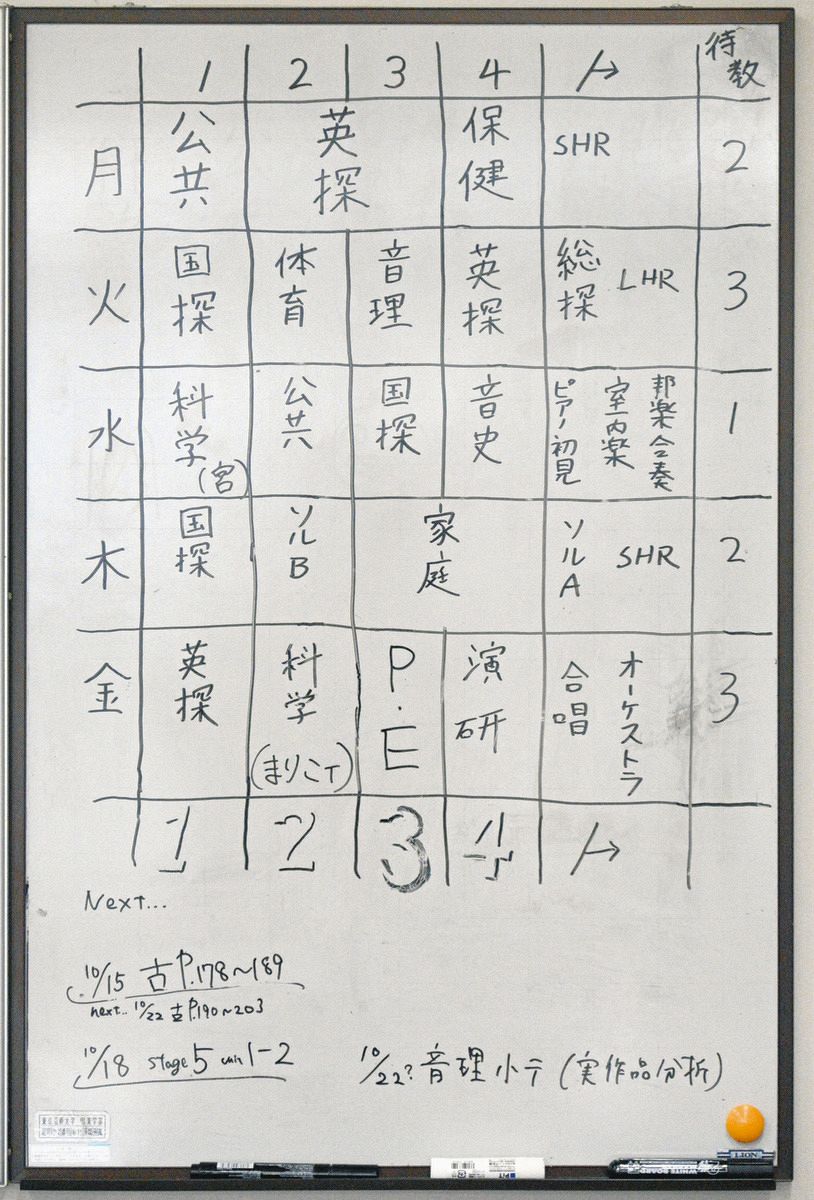 1 2 3 4 ト→ 待数
月 公共 英探 保健 SHR 2
火 国探 体育 音理 英探 総探 LHR 3
水 科学(宮) 公共 国探 音史 ピアノ初見 室内楽 邦楽合奏 1
木 国探 ソルB 家庭 ソルA SHR 2
金 英探 科学(まりこT) P.E 演研 合唱 オーケストラ 3
1 2 3 4 ト→
Next...
10/15 古 P.178〜189
next... 10/22 古 P.190〜203
10/18 stage 5 unit 1-2
10/22? 音理小テ(実作品分析)
LION
WHITE BOARD